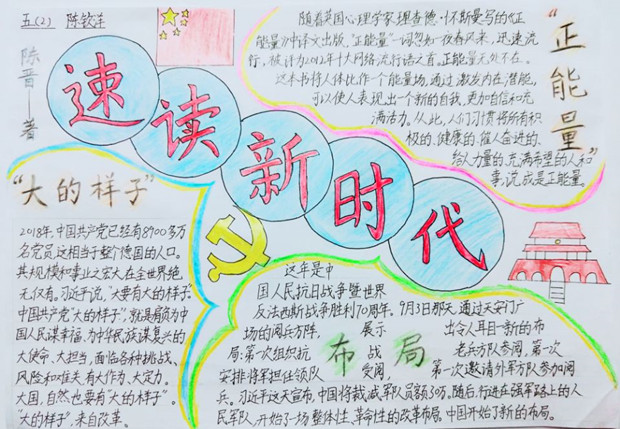 五(2) 陈铱浛
陈晋——著
速读新时代
随着英国心理学家理查德·怀斯曼写的《正
能量》中译文出版，"正能量"一词忽如一夜春风来，迅速流
行，被评为2012年十大网络流行语之首，正能量无处不在。
这本书将人体比作一个能量场，通过激发内在潜能，
可以使人表现出一个新的自我，更加自信和充
满活力。从此，人们习惯将所有积
极的、健康的、催人奋进的、
给人力量的、充满希望的人和
事，说成是正能量。
"正能量"
"大的样子"
2018年，中国共产党已经有8900多万
名党员，这相当于整个德国的人口。
其规模和事业之宏大在全世界绝
无仅有。习近平说，"大要有大的样子"。
中国共产党"大的样子"，就是肩负为中
国人民谋幸福，为中华民族谋复兴的
大使命、大担当，面临各种挑战、
风险和难关，有大作为、大定力。
大国，自然也要有"大的样子"。
"大的样子"，来自改革。
布局
这年是中
国人民抗日战争暨世界
反法西斯战争胜利70周年，9月3日那天，通过天安门广
场的阅兵方阵，展示出令人耳目一新的布
局：第一次组织抗战老兵方队参阅，第一次
安排将军担任领队受阅，第一次邀请外军方队参加阅
兵。习近平这天宣布，中国将裁减军队员额30万。随后，行进在强军路上的人
民军队，开始了一场整体性、革命性的改革布局。中国开始了新的布局。